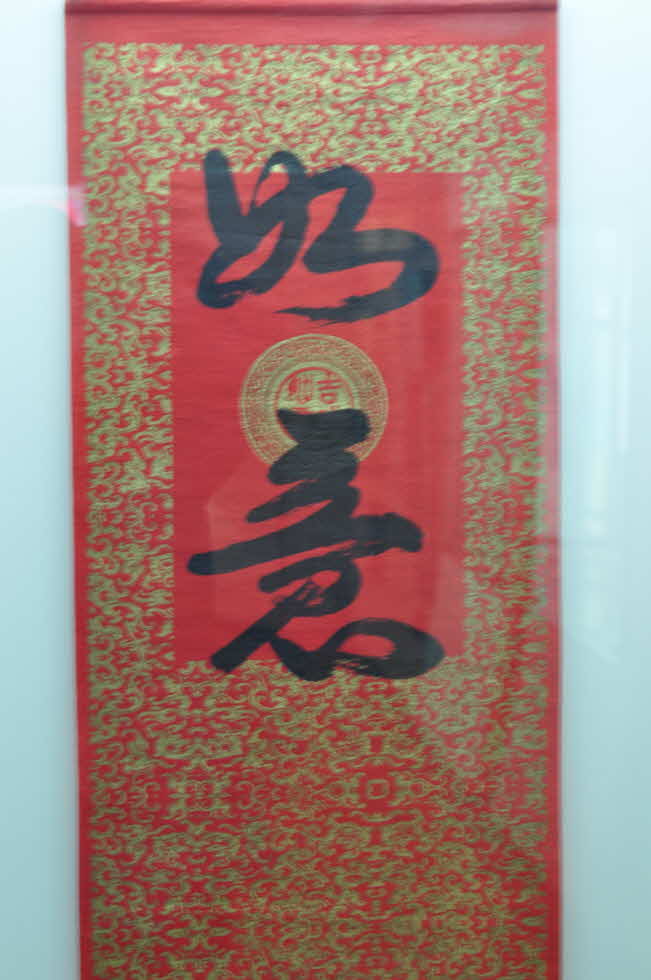 如
意
吉